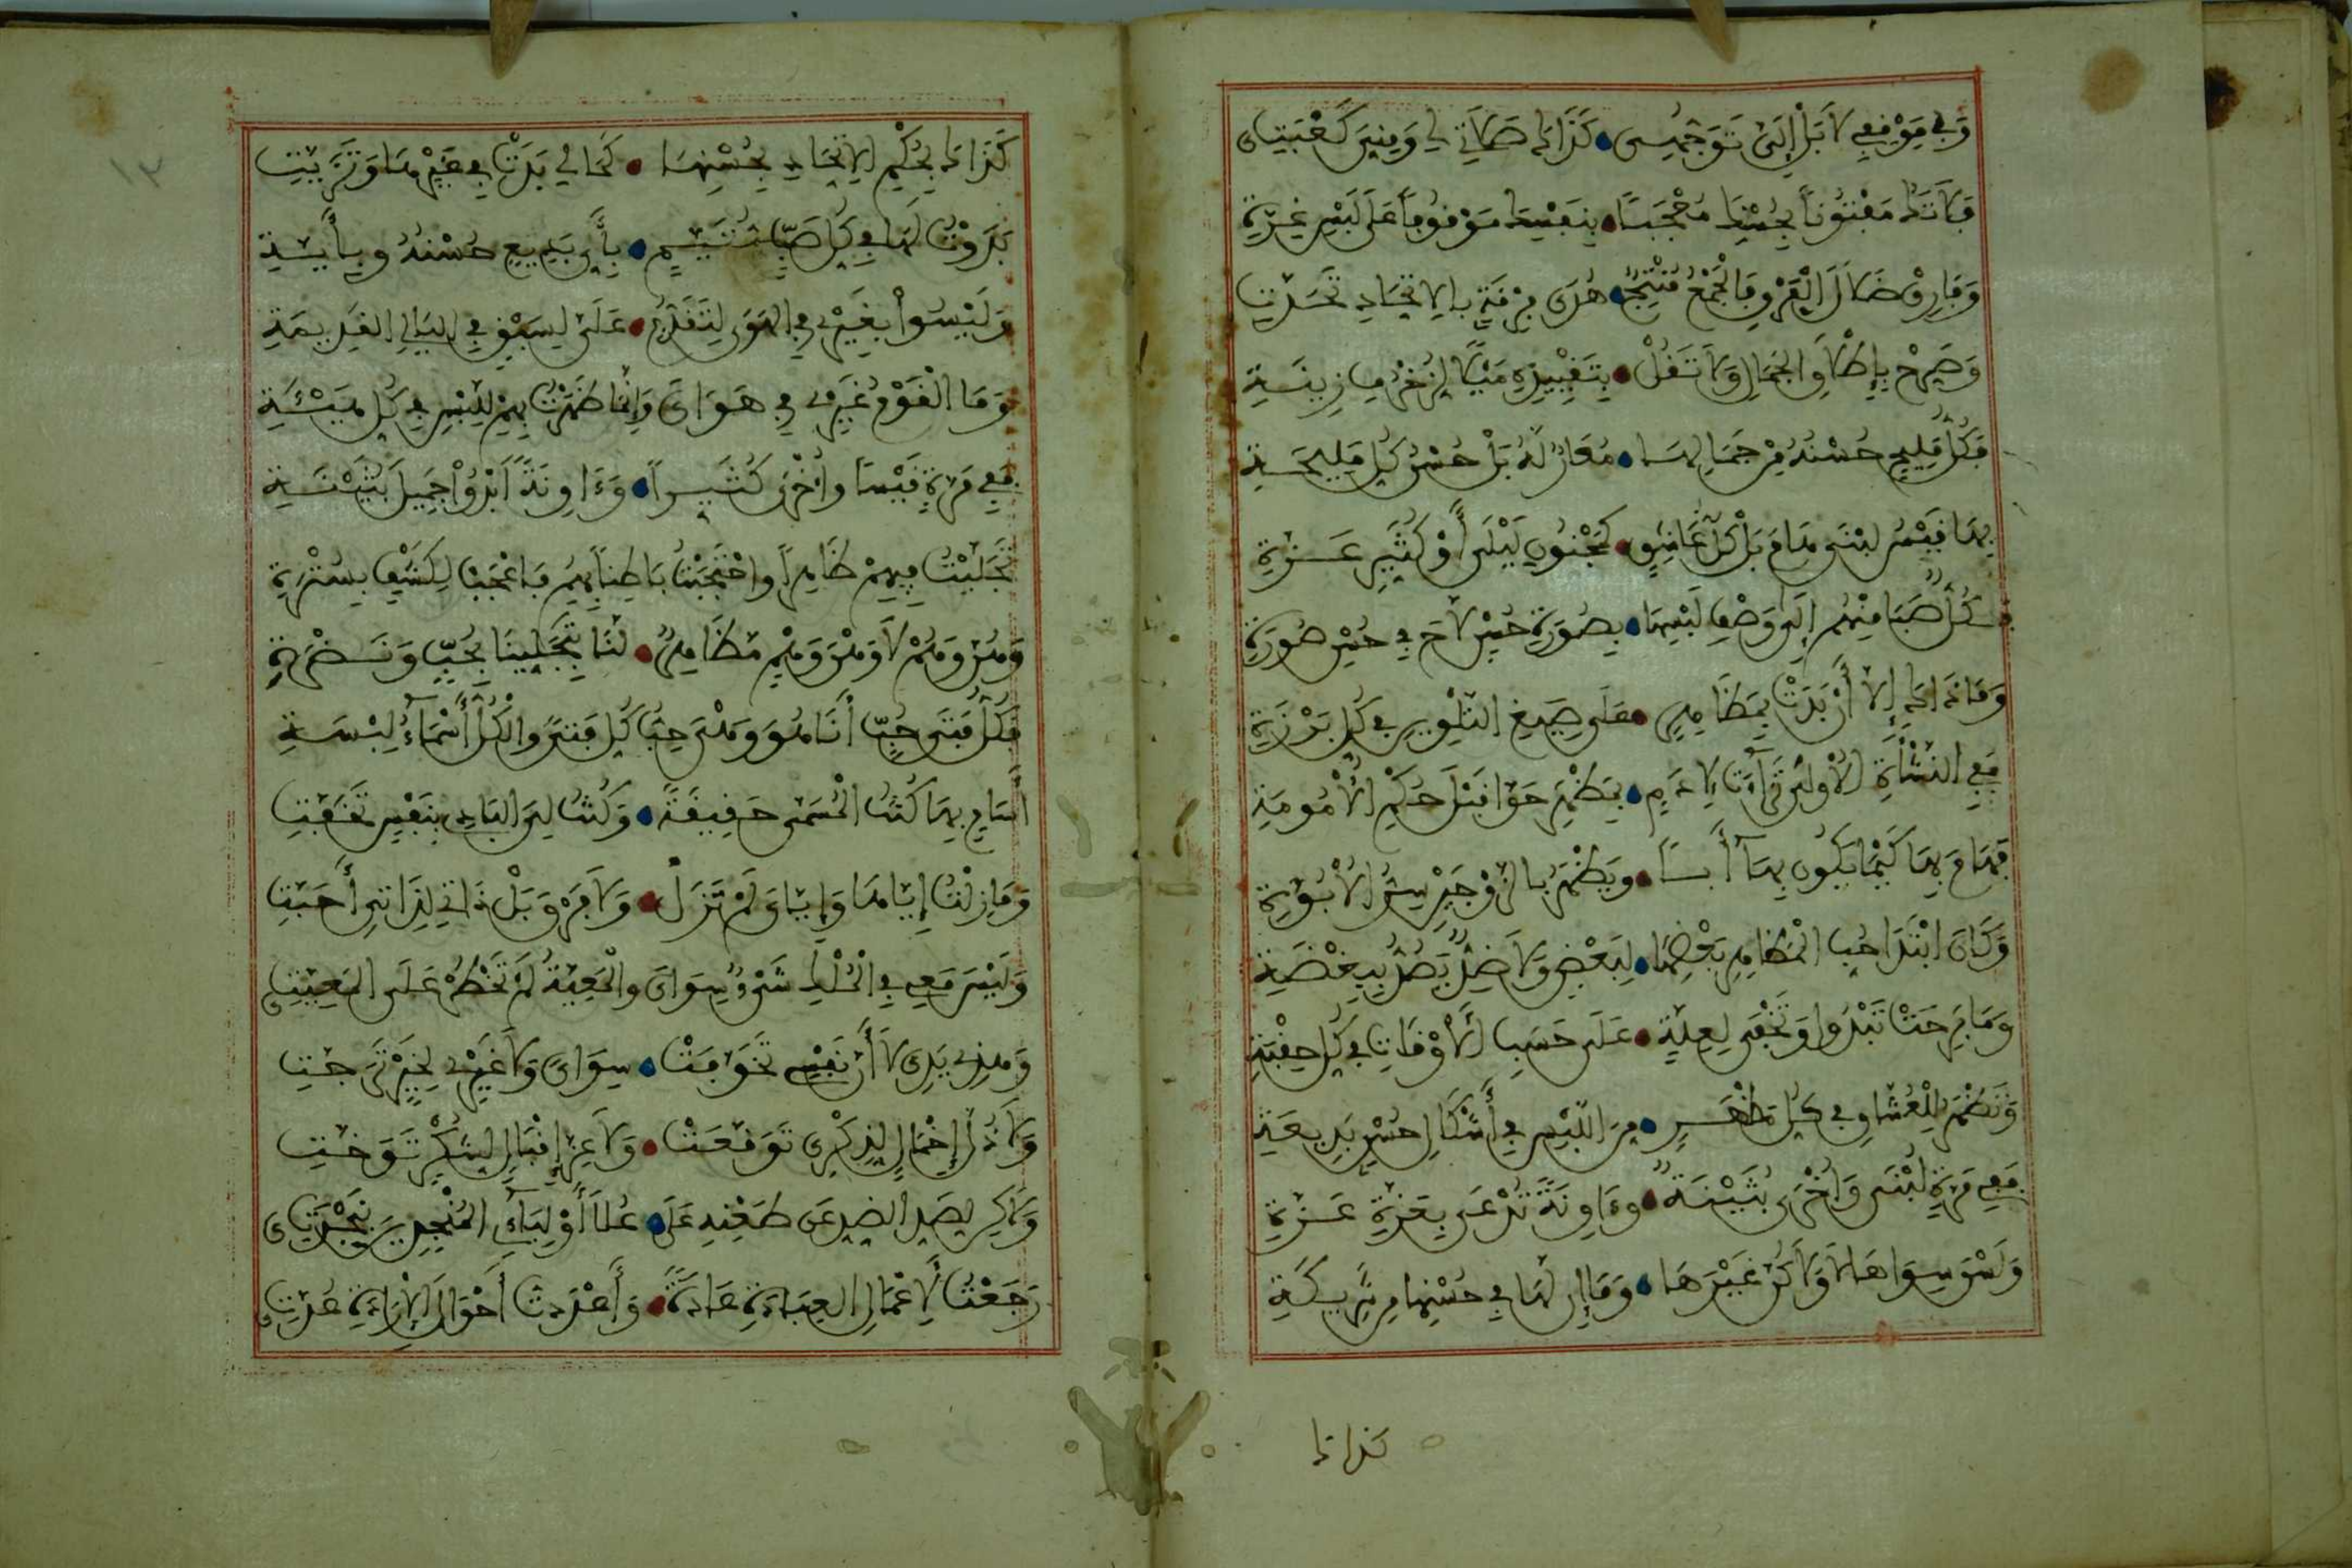 وَفِي مَوْقِفِي لَا بَلْ إِلَيَّ تَوَجُّهِي • كَذَاكَ صَلَاتِي لِي وَمِنِّيَ كَعْبَتِي
فَلَا تَكُ مَفْتُوناً بِحُسْنِكَ مُعْجَباً • بِنَفْسِكَ مَوْقُوفاً عَلَى لَبْسِ غِرَّةِ
وَفَارِقْ ضَلَالَ الْفَرْقِ فَالْجَمْعُ مُنْتِجٌ • هُدَى فِرْقَةٍ بِالِاتِّحَادِ تَحَدَّتِ
وَصَرِّحْ بِإِطْلَاقِ الْجَمَالِ وَلَا تَقُلْ • بِتَقْيِيدِهِ مَيْلاً لِزُخْرُفِ زِينَةِ
فَكُلُّ مَلِيحٍ حُسْنُهُ مِنْ جَمَالِهَا • مُعَارٌ لَهُ بَلْ حُسْنُ كُلِّ مَلِيحَةِ
بِهَا قَيْسُ لُبْنَى هَامَ بَلْ كُلُّ عَاشِقٍ • كَمَجْنُونِ لَيْلَى أَوْ كُثَيِّرِ عَزَّةِ
فَكُلٌّ صَبَا مِنْهُمْ إِلَى وَصْفِ لَبْسِهَا • بِصُورَةِ حُسْنٍ لَاحَ فِي حُسْنِ صُورَةِ
وَمَا ذَاكَ إِلَّا أَنْ بَدَتْ بِمَظَاهِرٍ • عَلَى صِيَغِ التَّلْوِينِ فِي كُلِّ بَرْزَةِ
فَفِي النَّشْأَةِ الْأُولَى تَرَاءَتْ لِآدَمٍ • بِمَظْهَرِ حَوَّا قَبْلَ حُكْمِ الْأُمُومَةِ
فَهَامَ بِهَا كَيْمَا يَكُونَ بِهَا أَباً • وَيَظْهَرَ بِالزَّوْجَيْنِ سِرُّ الْأُبُوَّةِ
وَكَانَ ابْتِدَا حُبِّ الْمَظَاهِرِ بَعْضِهَا • لِبَعْضٍ وَلَا ضِدٌّ يَصُدُّ بِبِغْضَةِ
وَمَا بَرِحَتْ تَبْدُوا وَتَخْفَى لِعِلَّةٍ • عَلَى حَسَبِ الْأَوْقَاتِ فِي كُلِّ حِقْبَةِ
وَتَظْهَرُ لِلْعُشَّاقِ فِي كُلِّ مَظْهَرٍ • مِنَ اللَّبْسِ فِي أَشْكَالِ حُسْنٍ بَدِيعَةِ
فَفِي مَرَّةٍ لُبْنَى وَأُخْرَى بُثَيْنَةٌ • وَءَاوِنَةً تُدْعَى بِعَزَّةِ عَزَّةِ
وَلَسْنَ سِوَاهَا لَا وَلَا كُنَّ غَيْرَهَا • وَمَا إِنْ لَهَا فِي حُسْنِهَا مِنْ شَرِيكَةِ
كذاك
كَذَاكَ بِحُكْمِ الِاتِّحَادِ بِحُسْنِهَا • كَمَا لِي بَدَتْ فِي غَيْرِهَا وَتَزَيَّتِ
بَدَوْتُ لَهَا فِي كُلِّ صَبٍّ مُتَيَّمٍ • بِأَيِّ بَدِيعٍ حُسْنُهُ وَبِأَيَّةِ
وَلَيْسُوا بِغَيْرِي فِي الْهَوَى لِتَقَدُّمٍ • عَلَيَّ لِسَبْقٍ فِي اللَّيَالِي الْقَدِيمَةِ
وَمَا الْقَوْمُ غَيْرِي فِي هَوَايَ وَإِنَّمَا ظَهَرْتُ بِهِمْ لِلَّبْسِ فِي كُلِّ هَيْئَةِ
فَفِي مَرَّةٍ قَيْساً وَأُخْرَى كُثَيِّراً • وَءَاوِنَةً أَبْدُوا جَمِيلَ بُثَيْنَةِ
تَجَلَّيْتُ فِيهِمْ ظَاهِراً وَاحْتَجَبْتُ بَاطِناً بِهِمُ فَاعْجَبْ لِكَشْفٍ بِسُتْرَةِ
وَهُنَّ وَهُمْ لَا وَهْنَ وَهْمٍ مَظَاهِرٌ • لَنَا بِتَجَلِّينَا بِحُبٍّ وَنَضْرَةِ
فَكُلُّ فَتَى حُبٍّ أَنَا هُوَ وَهْيَ حِبُّ كُلِّ فَتىً وَالْكُلُّ أَسْمَاءُ لِبْسَةِ
أَسَامٍ بِهَا كُنْتُ الْمُسَمَّى حَقِيقَةً • وَكُنْتُ لِيَ الْبَادِي بِنَفْسٍ تَخَفَّتِ
وَمَا زِلْتُ إِيَّاهَا وَإِيَّايَ لَمْ تَزَلْ • وَلَا فَرْقَ بَلْ ذَاتِي لِذَاتِي أَحَبَّتِ
وَلَيْسَ مَعِي فِي الْمُلْكِ شَيْءٌ سِوَايَ وَالْمَعِيَّةُ لَمْ تَخْطُرْ عَلَى الْمَعِيَّتِي
وَهَذِي يَدِي لَا أَنَّ نَفْسِي تَخَوَّفَتْ • سِوَايَ وَلَا غَيْرِي لِخَيْرٍ تَرَجَّتِ
وَلَا ذُلَّ إِخْمَالٍ لِذِكْرِي تَوَقَّعَتْ • وَلَا عِزَّ إِقْبَالٍ لِشُكْرٍ تَوَخَّتِ
وَلَكِنْ لِصَدِّ الضِّدِّ عَنْ طَعْنِهِ عَلَى • عُلَا أَوْلِيَاءِ الْمُنْجِدِينَ بِنَجْدَتِي
رَجَعْتُ لِأَعْمَالِ الْعِبَادَةِ عَادَةً • وَأَعْدَدْتُ أَحْوَالَ الْإِرَادَةِ عُدَّتِي